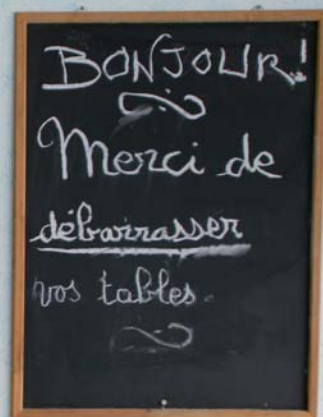 BONJOUR!
Merci de
débarrasser
vos tables.